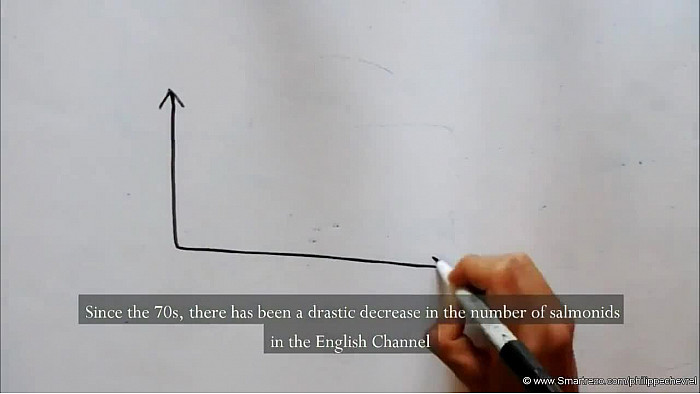 Since the 70s, there has been a drastic decrease in the number of salmonids
in the English Channel
© www.Smartrezo.com/philippechevrel